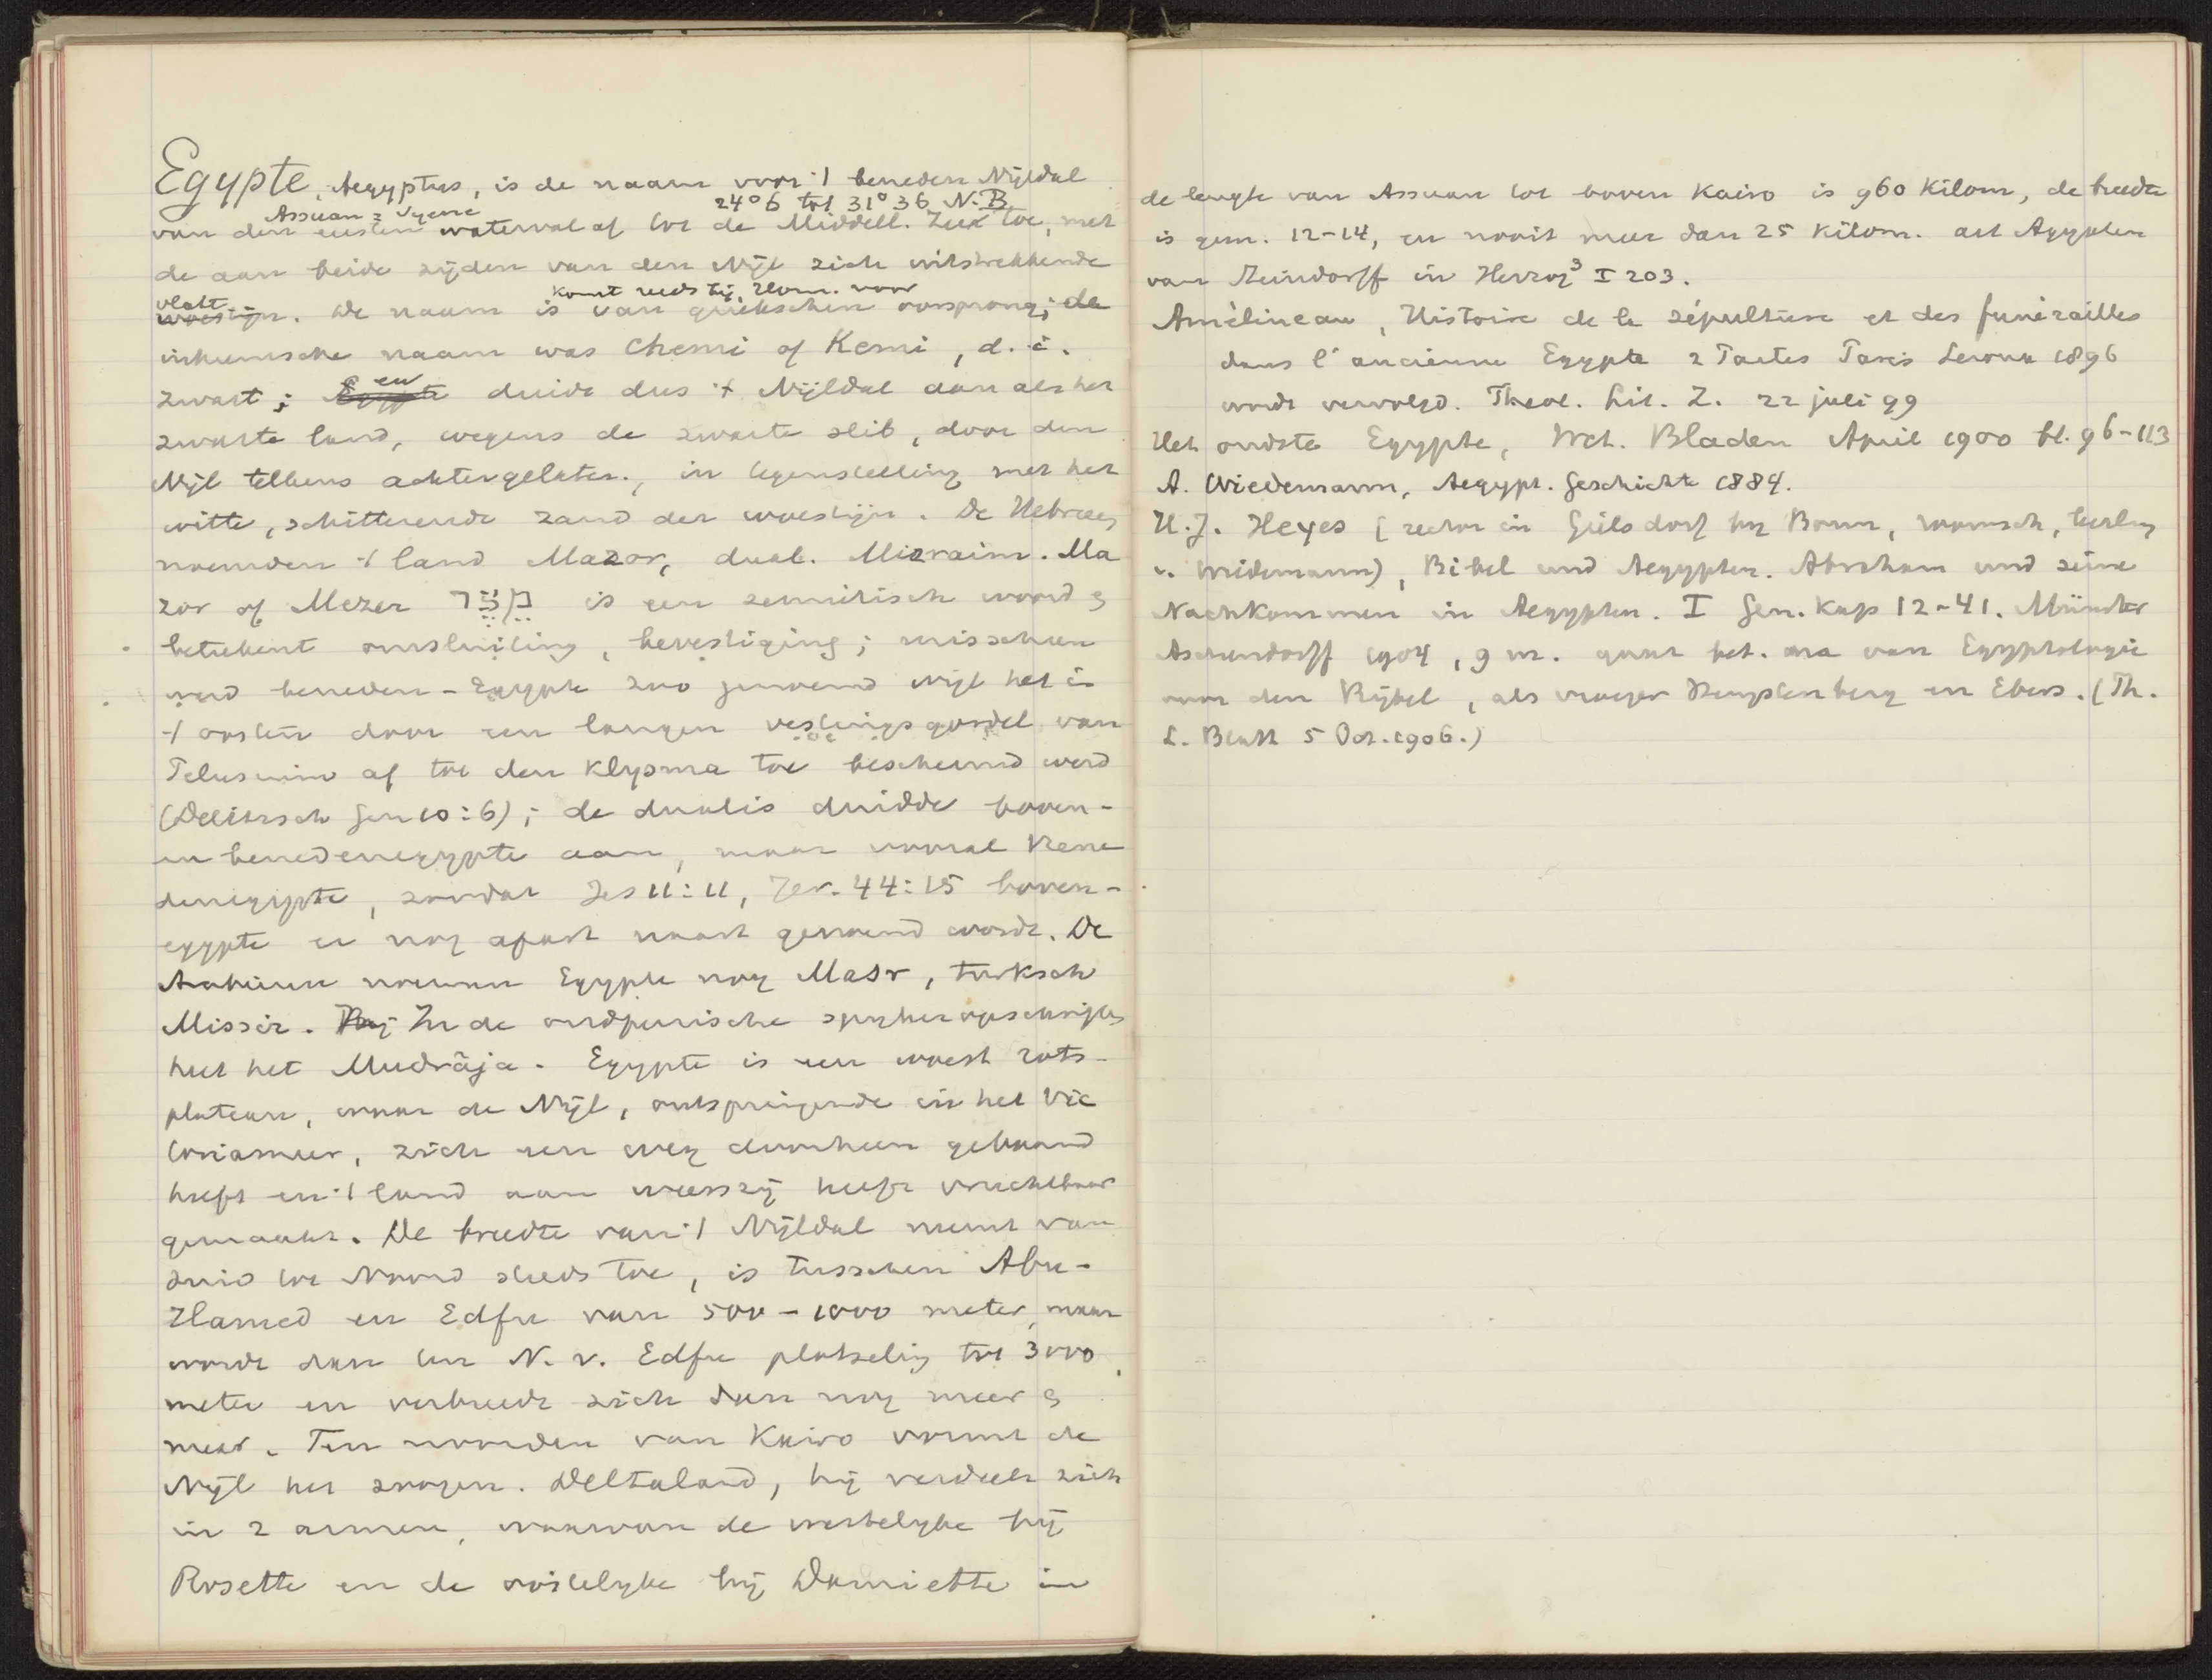 Egypte, Aegyptus, is de naam voor 't beneden Nijldal
Assuan = Syene 24° 6 tot 31° 36 N.B
van den eersten waterval af tot de Middell. Zee toe, met
de aan beide zijden van den Nijl zich uitstrekkende
vlakt komt reeds bij Hom. voor
woestijn. De naam is van griekschen oorsprong; de
inheemsche naam was Chemi of Kemi, d.i.
zwart; Egypte en duidt dus 't Nijldal aan als het
zwarte land, wegens de zwarte slib, door den
Nijl telkens achtergelaten, in tegenstelling met het
witte, schitterende zand der woestijn. De Hebreeën
noemden 't land Mazor, dual. Mizraim. Ma
zor of Mezer מצר is een semitisch woord en
beteekent omsluiting, bevestiging; misschien
werd beneden-Egypte zoo genoemd wijl het in
't oosten door een langen vestingsgordel van
Pelusium af tot den Klysma toe beschermd werd
(Delitzsch Gen 10:6); de dualis duidde boven-
en benedenegypte aan, maar vooral Bene
denegypte, zoodat Jes 11:11, Jer. 44:15 boven-
egypte er nog apart naast genoemd wordt. De
Arabieren noemen Egypte nog Masr, turksch
Missir. Bij In de oudperzische spijkeropschriften
heet het Mudrâja. Egypte is een woest rots-
plateau, waar de Nijl, ontspringende in het Vic
toriameer, zich een weg doorheen gebaand
heeft en 't land aan weerszij heeft vruchtbaar
gemaakt. De breedte van 't Nijldal neemt van
Zuid tot Noord steeds toe, is tusschen Abu-
Hamed en Edfu van 500-1000 meter, maar
wordt dan ten N. v. Edfu plotseling tot 3000
meter en verbreedt zich dan nog meer en
meer. Ten noorden van Kairo vormt de
Nijl het zoogen. Deltaland, hij verdeelt zich
in 2 armen, waarvan de westelijke bij
Rosette en de oostelijke bij Damiette in
de lengte van Assuan tot boven Kairo is 960 Kilom, de breedte
is gem. 12-14, en nooit meer dan 25 Kilom. art Agypten
van Steindorff in Herzog³ I 203.
Amélineau, Histoire de la sépulture et des funérailles
dans l'ancienne Egypte 2 Parties Paris Leroux 1896
wordt vervolgd. Theol. Lit. Z. 22 juli 99
Het oudste Egypte, Wet. Bladen April 1900 bl. 96-113
A. Wiedemann, Aegypt. Geschichte 1884.
H.J. Heyes (rector in Gielsdorf by Bonn, roomsch, leerling
v. Wiedemann), Bibel und Aegypten. Abraham und seine
Nachkommen in Aegypten. I Gen. Kap 12-41. Münster
Aschendorff 1904, 9 m. gaat bet. na van Egyptologie
voor den Bijbel, als vroeger Hengstenberg en Ebers. (Th.
L. Blatt 5 Oct. 1906.)